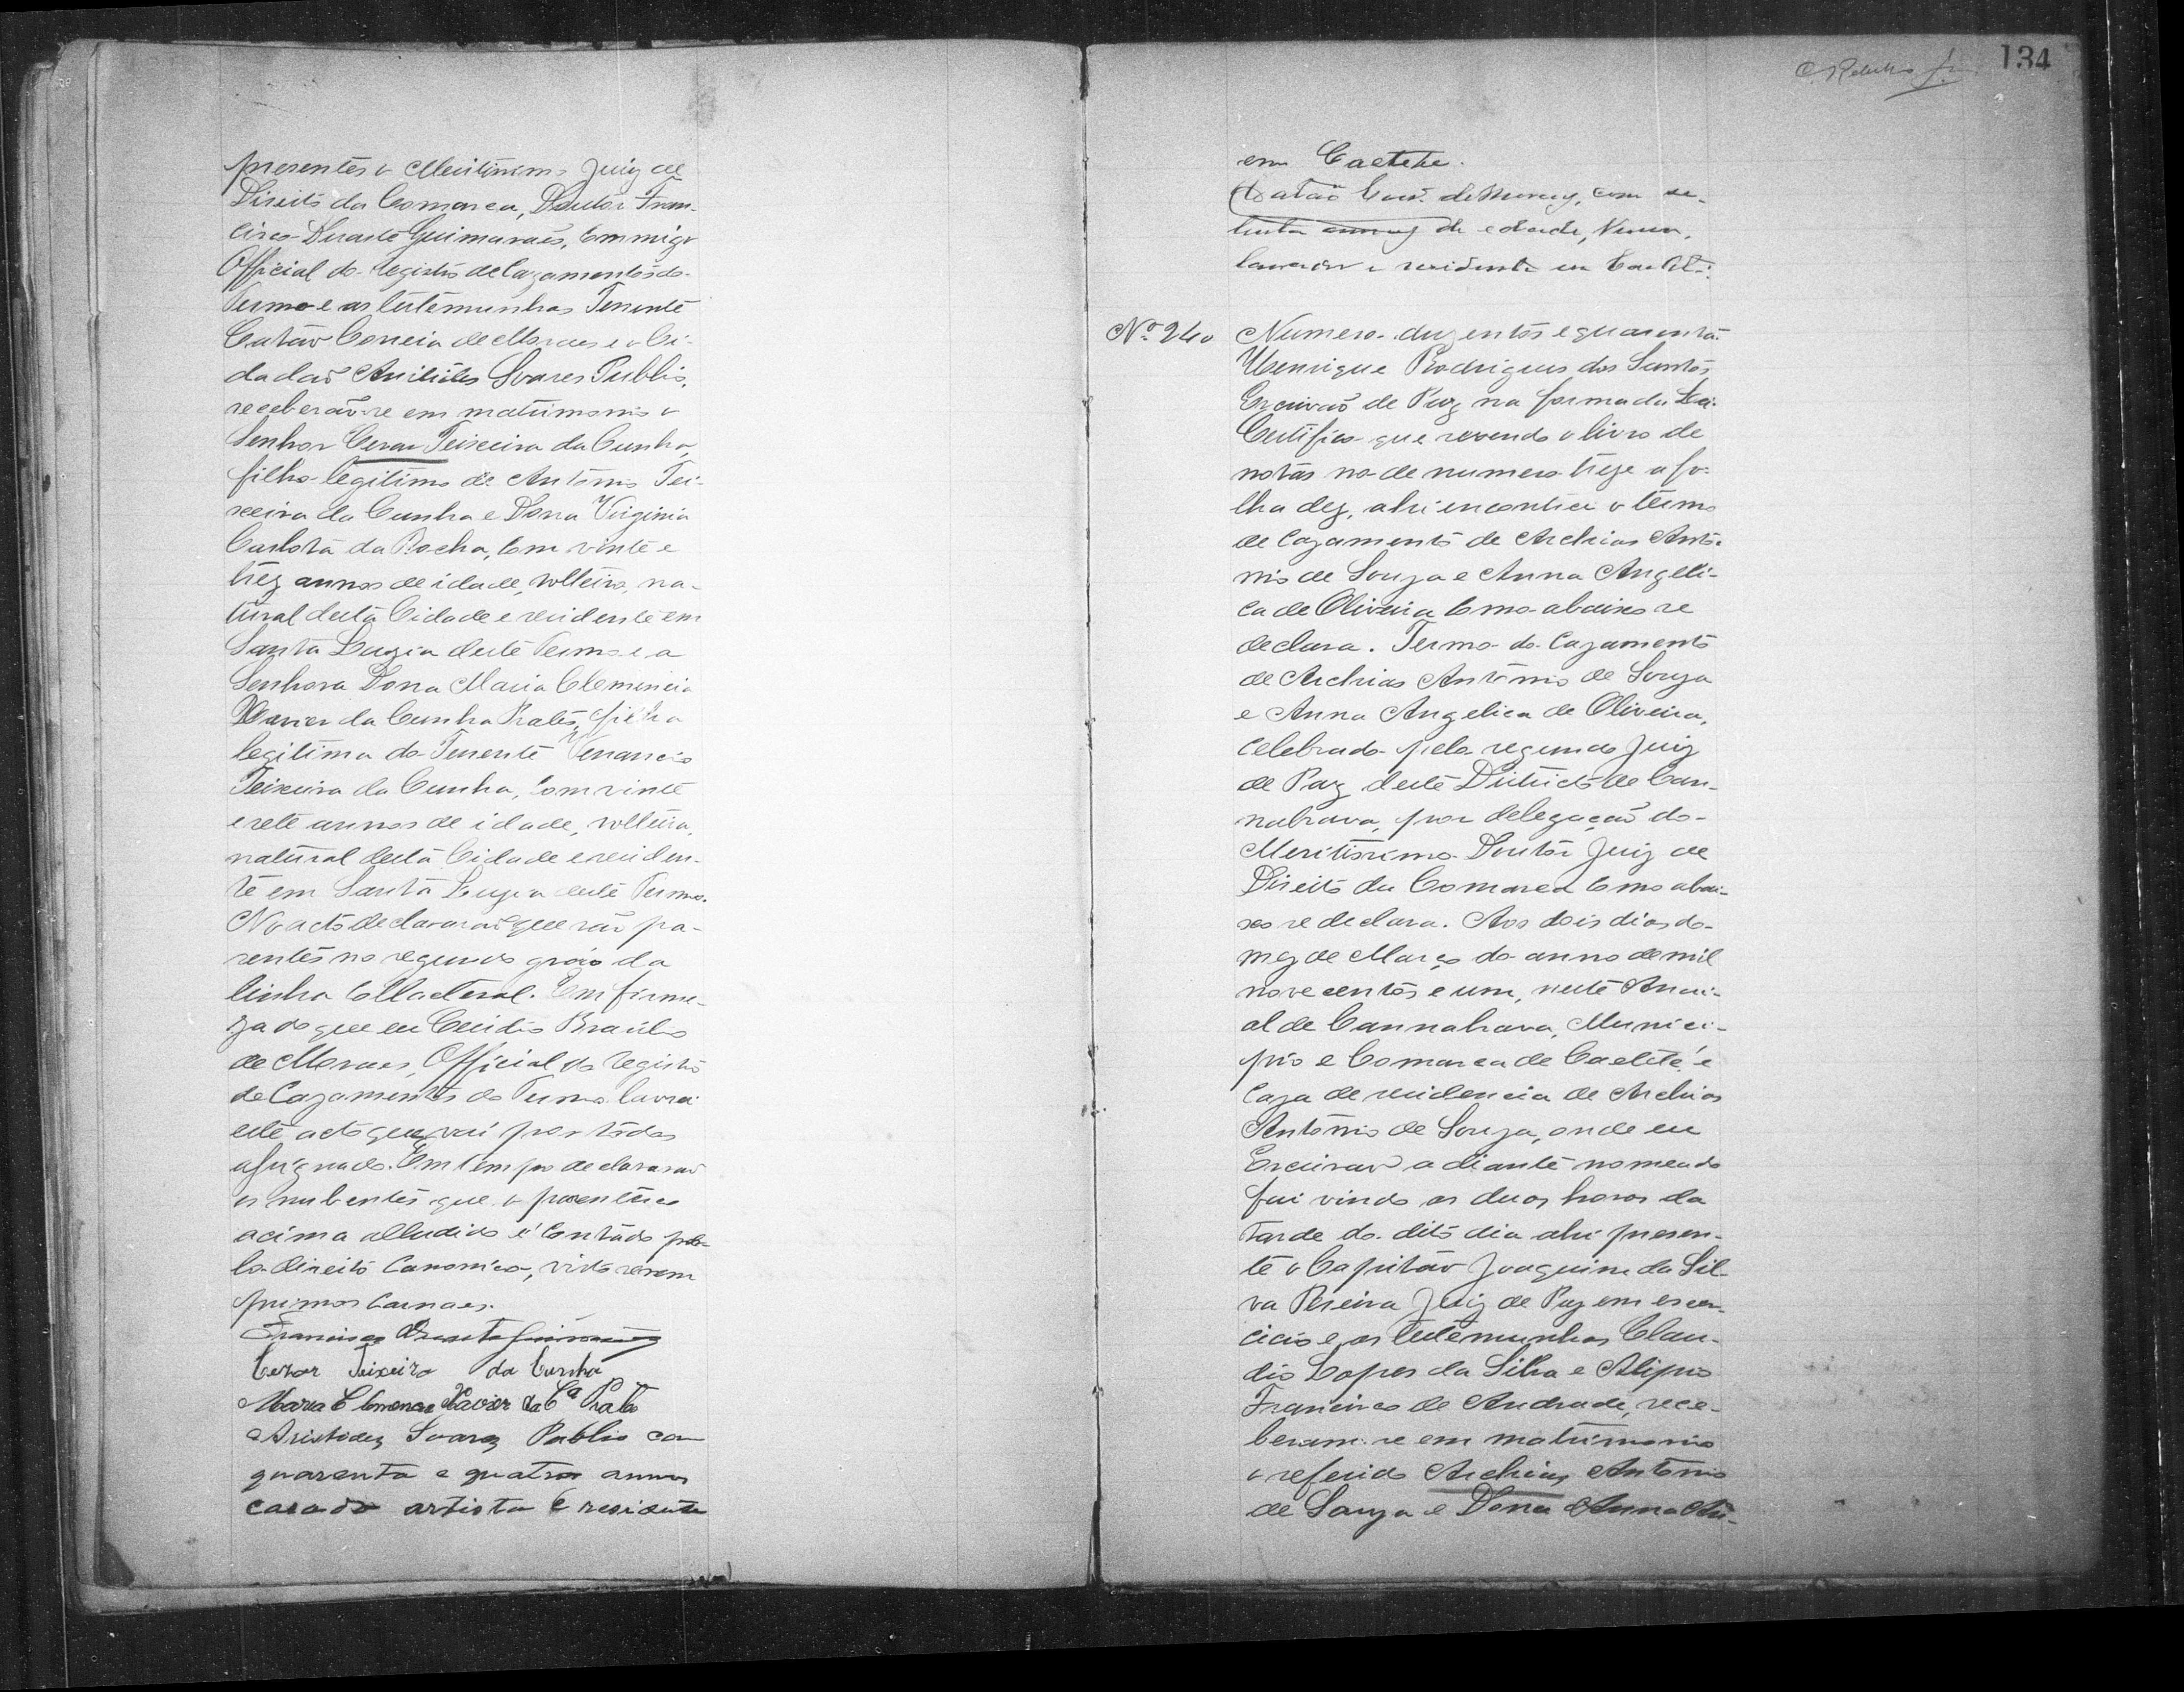 presentes o Meritissimo Juiz de
Direito da Comarca, Doutor Fran-
cisco Duarte Guimaraẽs, commigo
Official do registro de Cazamentos do
Termo e as testemunhas Tenente
Catão Correia de Moraes e o Ci-
dadaõ Aristides Soares Publio,
receberaõ-se em matrimonio o
Senhor Cezar Teixeira da Cunha,
filho legitimo de Antonio Tei-
xeira da Cunha e Dona Virginia
Carlota da Rocha, com vinte e
trez annos de idade, solteiro, na-
tural desta Cidade e residente em
Santa Luzia deste Termo e a
Senhora Dona Maria Clemencia
Xavier da Cunha Prates, filha
legitima do Tenente Venancio
Teixeira da Cunha, com vinte
e sete annos de idade, solteira,
natural desta Cidade e residen-
te em Santa Luzia deste Termo.
No acto declararaõ que saõ pa-
rentes no segundo gráo da
linha collacteral. Em firme-
za do que eu Braulio
de Moraes, Official do registro
de Cazamentos do Termo lavrei
este acto que vai por todos
assignado. Em tempo declararaõ
os nubentes que o parentesco
acima alludido é contado pe-
lo direito Canonico, visto serem
primos carnaes.
Francisco Duarte Guimarães
Cezar Teixeira da Cunha
Maria Clemencia Xavier da Cª Prates
Aristides Soares Publio com
quarenta e quatro annos
casado artista e residente
134
em Caetete.
Catão Corrª de Moraes, com se-
tenta annos de edade, Viuvo,
lavrador e residente em Caetité.
Nº 240
Numero duzentos e quarenta.
Henrique Rodrigues dos Santos,
Escrivaõ de Paz na forma da Lei.
Certifico que revendo o livro de
notas no de numero treze a fo-
lha dez, ahi encontrei o termo
de cazamento de Archias Anto-
nio de Souza e Anna Angeli-
ca de Oliveira como abaixo se
declara. Termo do Cazamento
de Archias Antonio de Souza
e Anna Angelica de Oliveira,
celebrado pelo segundo Juiz
de Paz deste Districto de Can-
nabrava, por delegaçaõ do
Meritissimo Doutor Juiz de
Direito da Comarca como abai-
xo se declara. Aos dois dias do
mez de Março do anno de mil
nove centos e um, neste Arrai-
al de Cannabrava, Munici-
pio e Comarca de Caetité, e
caza de residencia de Archias
Antonio de Souza, onde eu
Escrivaõ a diante nomeado
fui vindo as duas horas da
tarde do dito dia ahi presen-
te o Capitão Joaquim da Sil-
va Pereira Juiz de Paz em exer-
cicio e as testemunhas Clau-
dio Lopes da Silva e Alipio
Francisco de Andrade, rece-
beram-se em matrimonio
o referido Archias Antonio
de Souza e Dona Anna An-